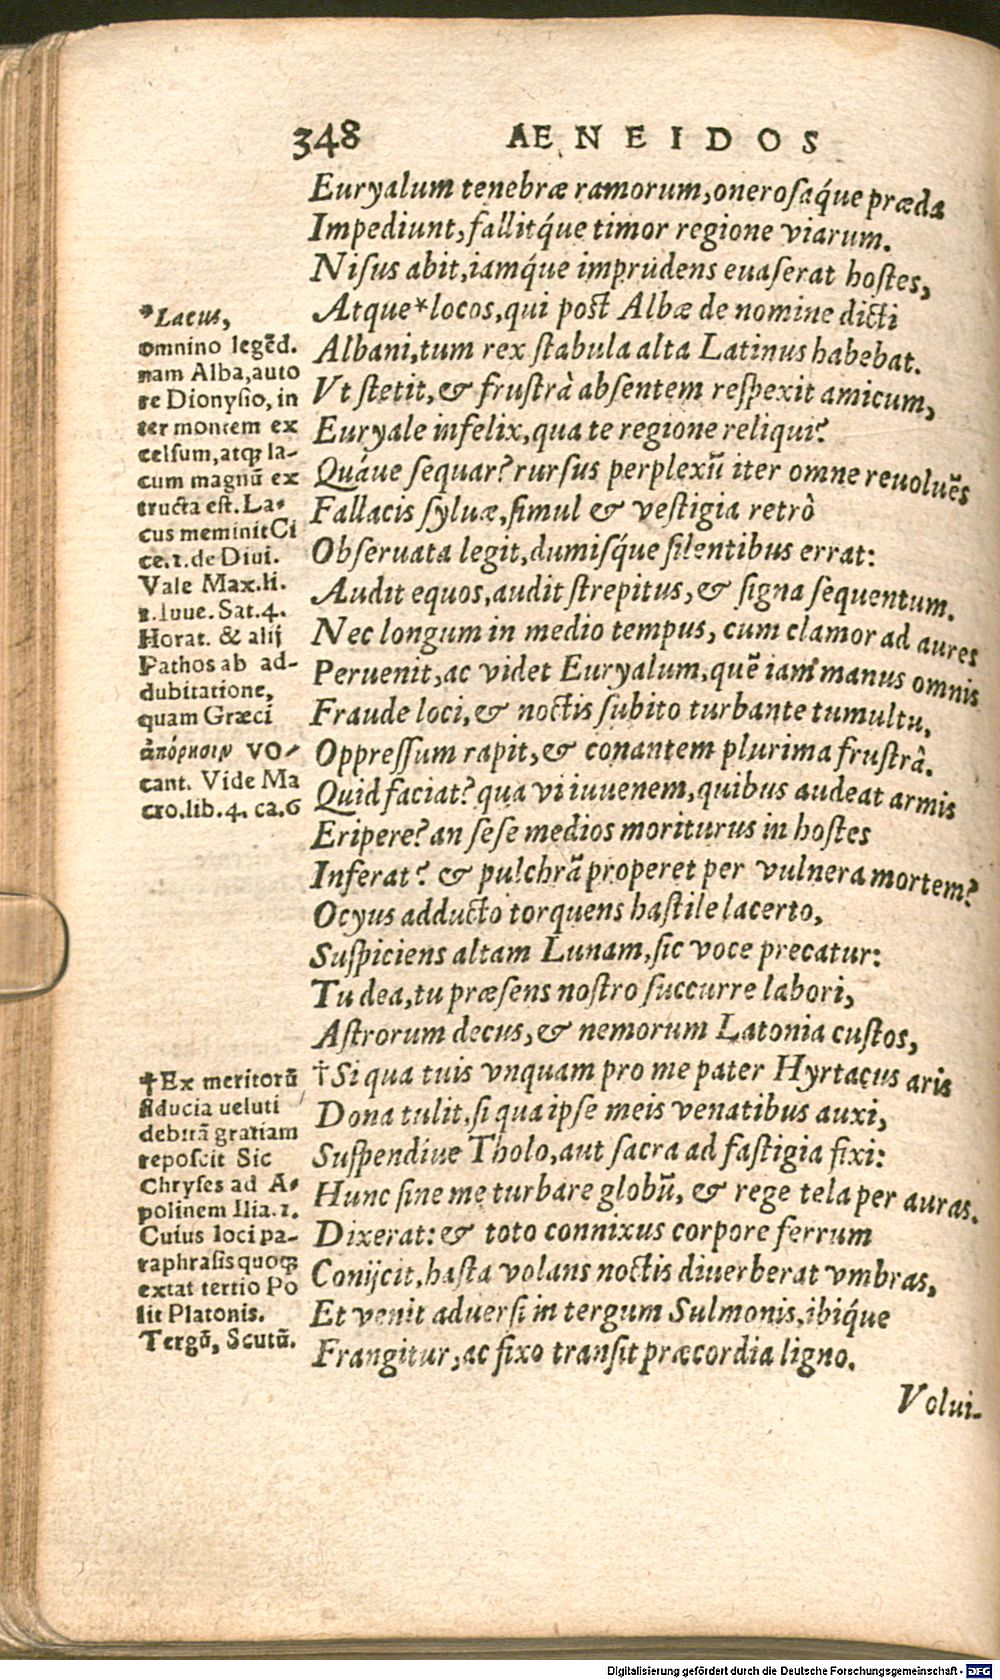 348 AENEIDOS
Euryalum tenebræ ramorum, onerosaq́ue præda
Impediunt, fallitq́ue timor regione viarum.
Nisus abit, iamq́ue imprudens euaserat hostes,
Atque * locos, qui post Albæ de nomine dicti
Albani, tum rex stabula alta Latinus habebat.
Vt stetit, & frustrà absentem respexit amicum,
Euryale infelix, qua te regione reliqui?
Quáue sequar? rursus perplexũ iter omne reuoluẽs
Fallacis syluæ, simul & vestigia retrò
Obseruata legit, dumisq́ue silentibus errat:
Audit equos, audit strepitus, & signa sequentum.
Nec longum in medio tempus, cum clamor ad aures
Peruenit, ac videt Euryalum, quẽ iam manus omnis
Fraude loci, & noctis subito turbante tumultu,
Oppressum rapit, & conantem plurima frustrà.
Quid faciat? qua vi iuuenem, quibus audeat armis
Eripere? an sese medios moriturus in hostes
Inferat? & pulchrã properet per vulnera mortem?
Ocyus adducto torquens hastile lacerto,
Suspiciens altam Lunam, sic voce precatur:
Tu dea, tu præsens nostro succurre labori,
Astrorum decus, & nemorum Latonia custos,
†Si qua tuis vnquam pro me pater Hyrtacus aris
Dona tulit, si qua ipse meis venatibus auxi,
Suspendiue Tholo, aut sacra ad fastigia fixi:
Hunc sine me turbare globũ, & rege tela per auras.
Dixerat: & toto connixus corpore ferrum
Conijcit, hasta volans noctis diuerberat vmbras,
Et venit aduersi in tergum Sulmonis, ibiq́ue
Frangitur, ac fixo transit præcordia ligno.
Volui-
*Lacus,
omnino legẽd.
nam Alba, auto
re Dionysio, in
ter montem ex
celsum, atq; la-
cum magnũ ex
tructa est. La-
cus meminit Ci
ce. 1. de Diui.
Vale Max. li.
1. Iuue. Sat. 4.
Horat. & alij
Pathos ab ad-
dubitatione,
quam Græci
ἀπόρησιν vo-
cant. Vide Ma
cro. lib. 4. ca. 6
†Ex meritorũ
fiducia ueluti
debitã gratiam
reposcit Sic
Chryses ad A-
polinem Ilia. 1.
Cuius loci pa-
raphrasis quoq;
extat tertio Po
lit Platonis.
Tergũ, Scutũ.
Digitalisierung gefördert durch die Deutsche Forschungsgemeinschaft - DFG